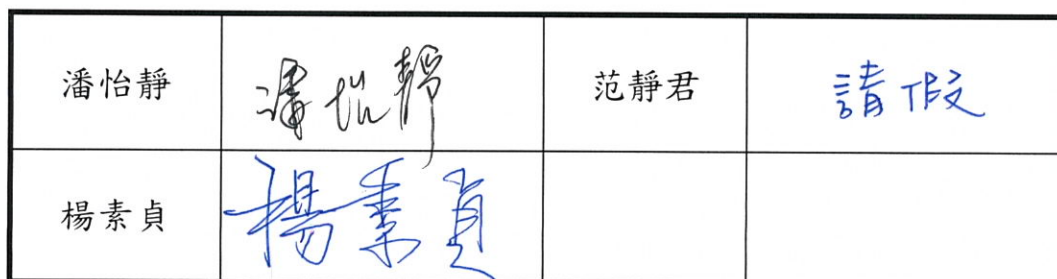 潘怡靜 潘怡靜 范靜君 請假
楊素貞 楊素貞